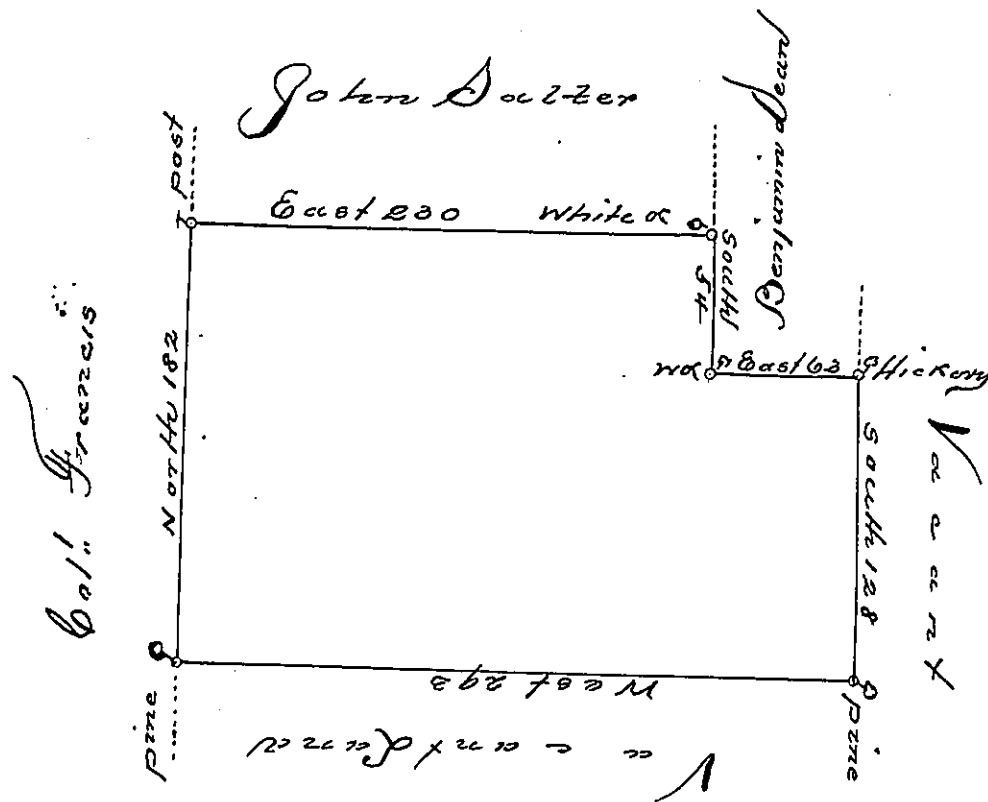 John Salter
Benjamin Dean
post
East 230
White O
South
54
WO
East 63
Hickory
Col. Francis
North 182
South 128
Vacant
West 293
pine
pine
Vacant Land